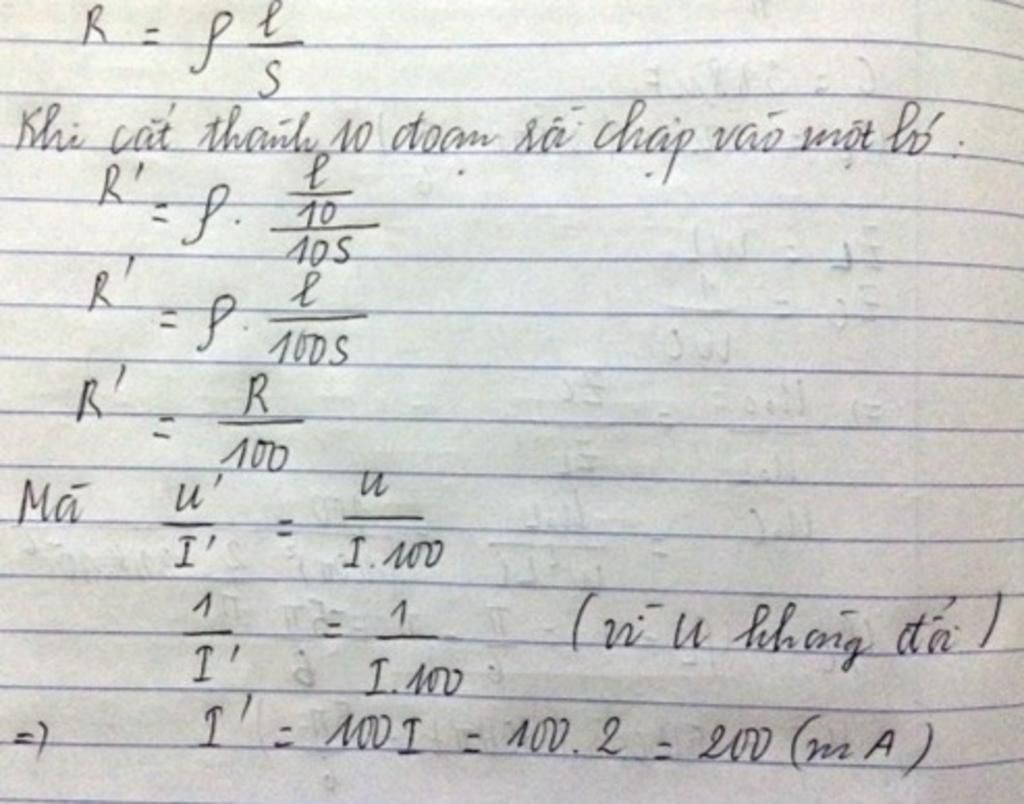 R = ρ l/S
Khi cắt thành 10 đoạn rồi chập vào một bó.
R' = ρ . (l/10)/(10S)
R' = ρ . l/(100S)
R' = R/100
Mà U'/I' = U/(I.100)
1/I' = 1/(I.100) (vì U không đổi)
=) I' = 100I = 100.2 = 200 (mA)